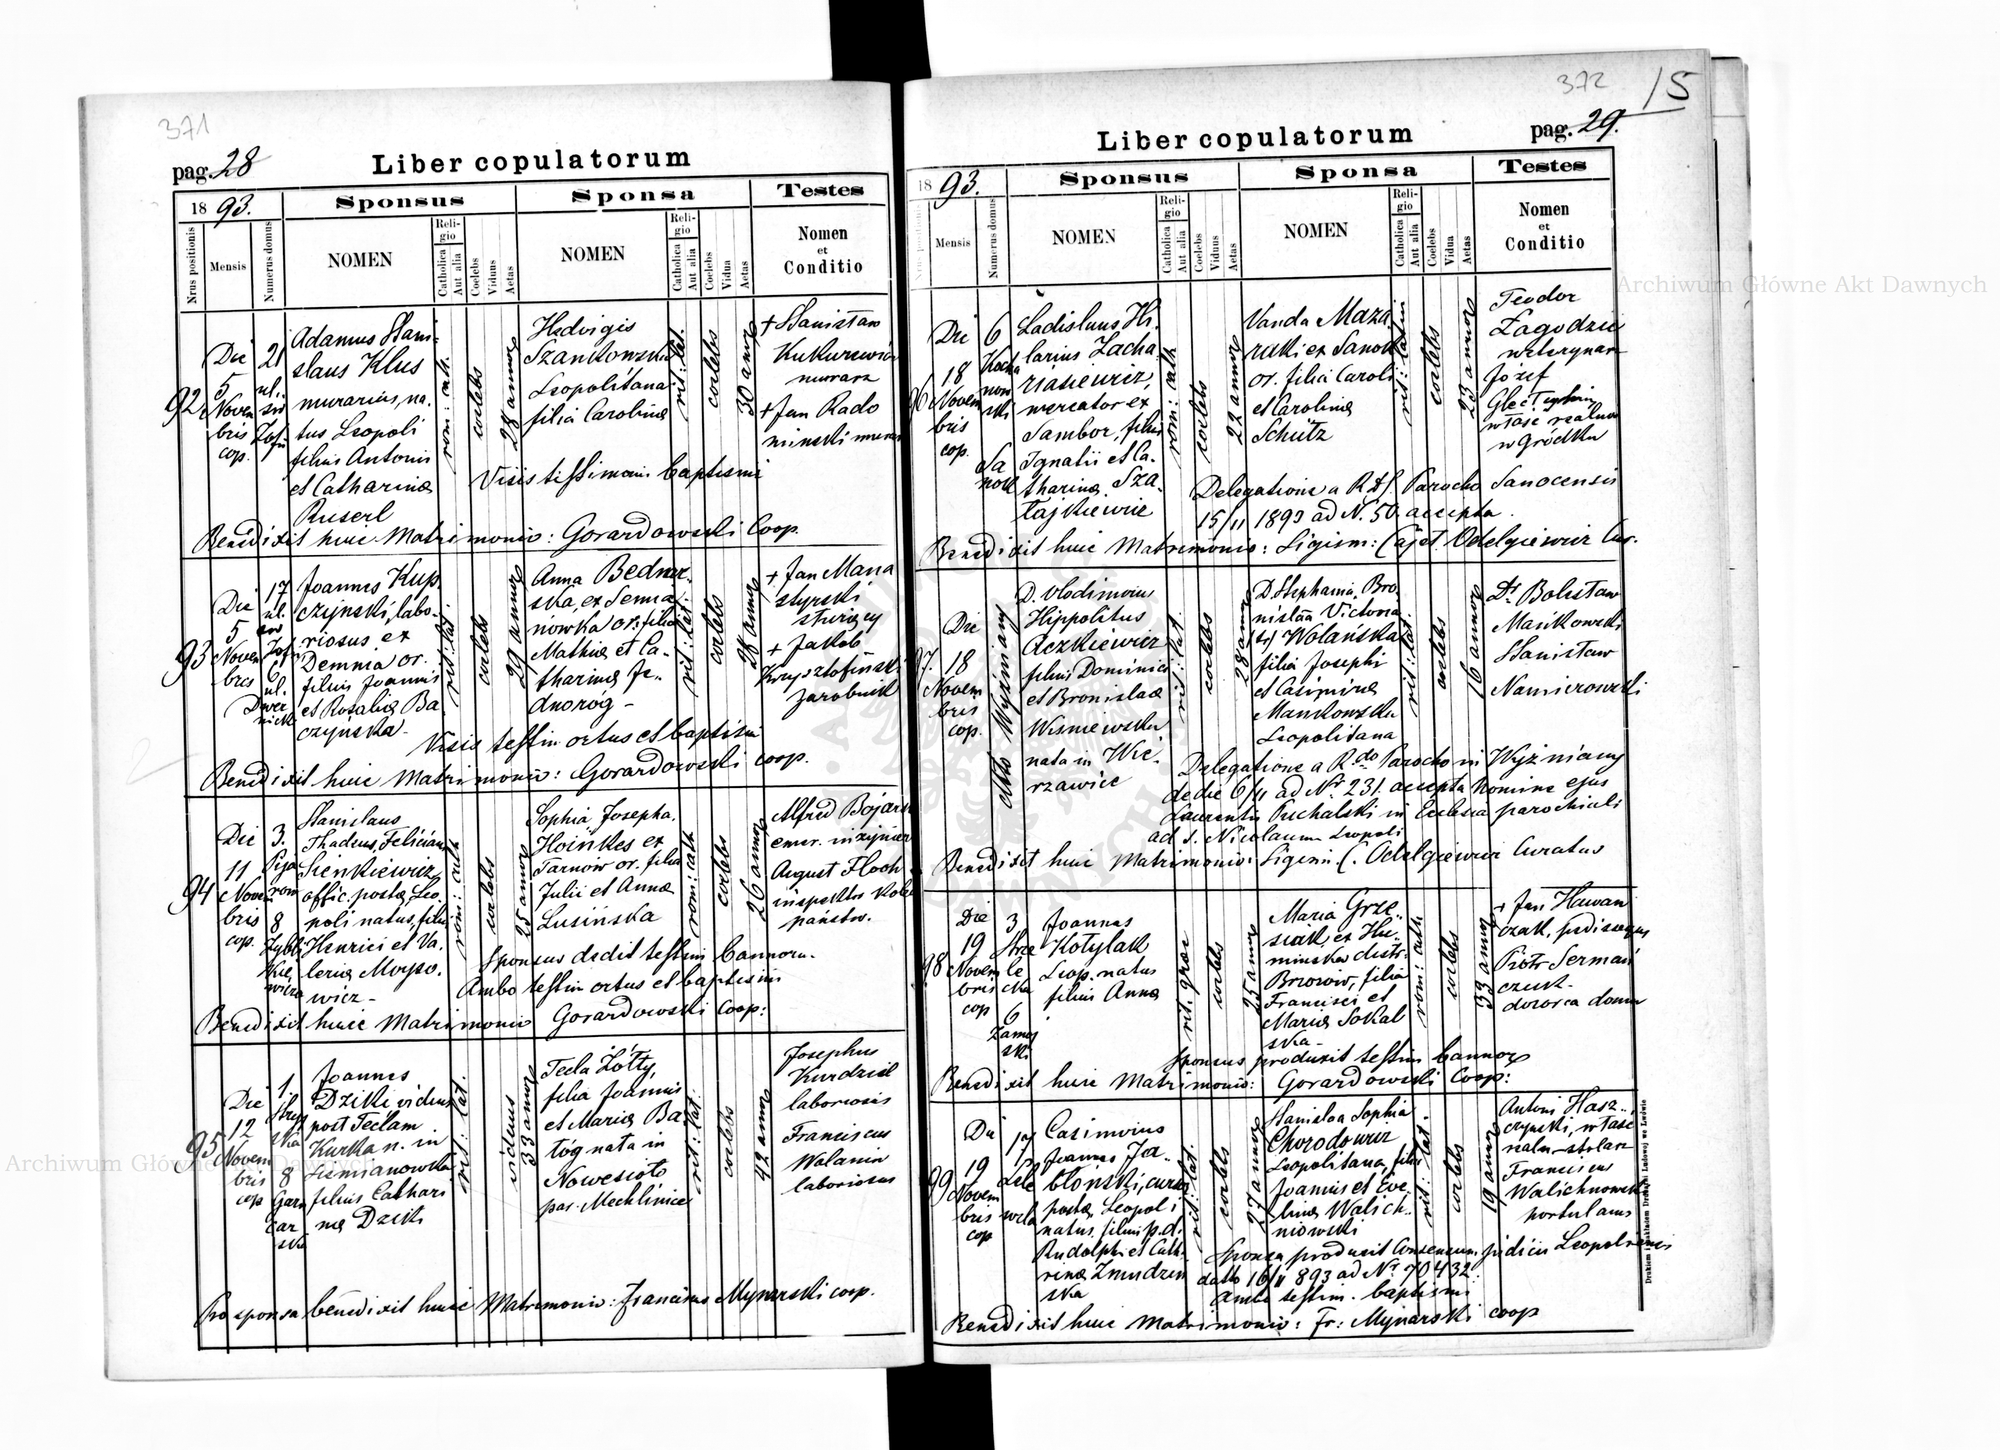 371
pag. 28
Liber copulatorum
1893.
Sponsus
Sponsa
Testes
Nrus positionis
Mensis
Numerus domus
NOMEN
Religio
Catholica
Aut alia
Coelebs
Viduus
Aetas
NOMEN
Religio
Catholica
Aut alia
Coelebs
Vidua
Aetas
Nomen
et
Conditio
92
Die
5
Novem
bris
cop.
21
ul.
św
Zofii
Adamus Stani-
slaus Klus
murarius, na-
tus Leopoli
filius Antonii
et Catharinæ
Ruserl
rom: cath.
coelebs
28 annor
Hedvigis
Szankowska
Leopolitana
filia Carolinæ
rit: lat.
coelebs
30 annor
+ Stanisław
Kukurewicz
murarz
+ Jan Rado
minski murar
Visis testimoniis baptismi
Benedixit huic Matrimonio: Gorardowski Coop.
93
Die
5
Novem
bris
17
ul.
św
Zofi
6
ul.
Dwer
nicki
Joannes Kup-
czynski, labo-
riosus ex
Demnia or.
filius Joannis
et Rosaliæ Ba-
czyńska
rit: lat
coelebs
29 annor
Anna Bednar-
ska, ex Senna-
nowka or. filia
Mathiæ et Ca-
tharinæ Je-
dnoróg
rit: lat.
coelebs
28 annor
+ Jan Mana
styrski
służący
+ Jakob
Krzysztofinski
zarobnik
Visis testim ortus et baptismi
Benedixit huic Matrimonio: Gorardowski coop.
94
Die
11
Novem
bris
cop.
3.
Pija
rom
8
Zybli
kie
wicza
Stanislaus
Thadeus, Felicianus
Sienkiewicz
offic. postæ, Leo-
poli natus, filius
Henrici et Va-
leriæ Moyso-
wicz
rom: cath
coelebs
25 annor
Sophia Josepha.
Hoinkes ex
Tarnów or. filia
Julii et Annæ
Lusińska
rom: cath
coelebs
26 annor
Alfred Bojars
emer. inżynier
August Floch
inspektor kolei
państw.
Sponsus dedit testim bannorum
Ambo testim ortus et baptismi
Benedixit huic Matrimonio Gorardowski Coop:
95
Die
12
Novem
bris
cop
1.
Stryj
ska
8
Garn
car
ska
Joannes
Dziki viduus
post Teclam
Kurka n. in
Ziemianowska
filius Cathari
næ Dziki
rit: lat.
viduus
33 annor
Tecla Żółty,
filia Joannis
et Mariæ Ba-
tóg nata in
Nowesioło
par. Mechlinice
rit: lat.
coelebs
42 annor
Josephus
Kurdziel
laboriosus
Franciscus
Wolanin
laboriosus
Pro sponsa benedixit huic Matrimonio: Franciscus Mynarski coop.
372
15
pag. 29.
Liber copulatorum
1893.
Sponsus
Sponsa
Testes
Mensis
Numerus domus
NOMEN
Religio
Catholica
Aut alia
Coelebs
Viduus
Aetas
NOMEN
Religio
Catholica
Aut alia
Coelebs
Vidua
Aetas
Nomen
et
Conditio
96
Die
18
Novem
bris
cop.
6
Kocha
now
ski
Sa
nok
Ladislaus Hi-
larius Zacha
riasiewicz,
mercator ex
Sambor, filius
Ignatii et Ca-
tharinæ Sza-
łajkiewicz
rom: cath
coelebs
22 annor
Vanda Maza
raki ex Sanok
or. filia Caroli
et Carolinæ
Schütz
rit: latin
coelebs
23 annor
Teodor
Zagodzie
weterynarz
Józef
w Gródku
Delegatione a Parocho Sanocensis
15/11 1893 ad N. 50. accepta.
Benedixit huic Matrimonio: Sigism: Cajet. Odelgiewicz Cur.
97.
Die
18
Novem
bris
cop.
Wyżniany
D. Vlodimirus
Hippolitus
Aczkiewicz
filius Dominici
et Bronislaæ
Wisniewska
nata in Wie-
rzawice
rit: lat.
coelebs
28 annor
D. Stephania, Bro-
nislaa Victoria
Wolańska
filia Josephi
et Casimiræ
Mankowska
Leopolitana
rit: lat.
coelebs
16 annor
Dr Bolesław
Mańkowski
Stanisław
Namierowski
Delegatione a Rdo Parocho in Wyżniany
de die 6/11 ad Nr 231. accepta Nomine ejus
Laurentii Puchalski in Ecclesia parochiali
ad S. Nicolaum Leopoli
Benedixit huic Matrimonio: Sigism C. Odelgiewicz Curatus
98
Die
19
Novem
bris
cop
3
Strze
le
cka
6
Zamoj
ski
Joannes
Kotylak
Leop. natus
filius Annæ
rit. græc
coelebs
25 annor
Maria Grze-
siak, ex Hu-
miniska distr.
Brzozów, filia
Francisci et
Mariæ Sokal
ska
rom: cath
coelebs
33 annor
+ Jan Hawan
czak, pedisequus
Piotr Serman
dozorca domu
Sponsus produxit testim bannor
Benedixit huic Matrimonio: Gorardowski Coop:
99
Die
19
Novem
bris
cop
17
Zele
wela
Casimirus
Joannes Ja-
błoński, cursor
postæ, Leopoli
natus, filius p.d.
Rudolphi et Cath-
rinæ Zmudzin
ska
rit: lat.
coelebs
27 annor
Stanislaa Sophia
Chorodowicz
Leopolitana, filia
Joannis et Eve-
linæ Walich-
niowski
rit: lat.
coelebs
19 annor
Antoni Hasz-
czynski, właśc
realn. stolarz
Franciscus
Walichnowski
portulanus
Sponsa produxit Consensum judicii Leopoliensis
ddto 16/11 893 ad Nr 70432.
Ambo testim. baptismi
Benedixit huic Matrimonio: Fr: Mynarski coop
Drukiem i nakładem Drukarni Ludowej we Lwowie
Archiwum Główne Akt Dawnych
Archiwum Główne Akt Dawnych